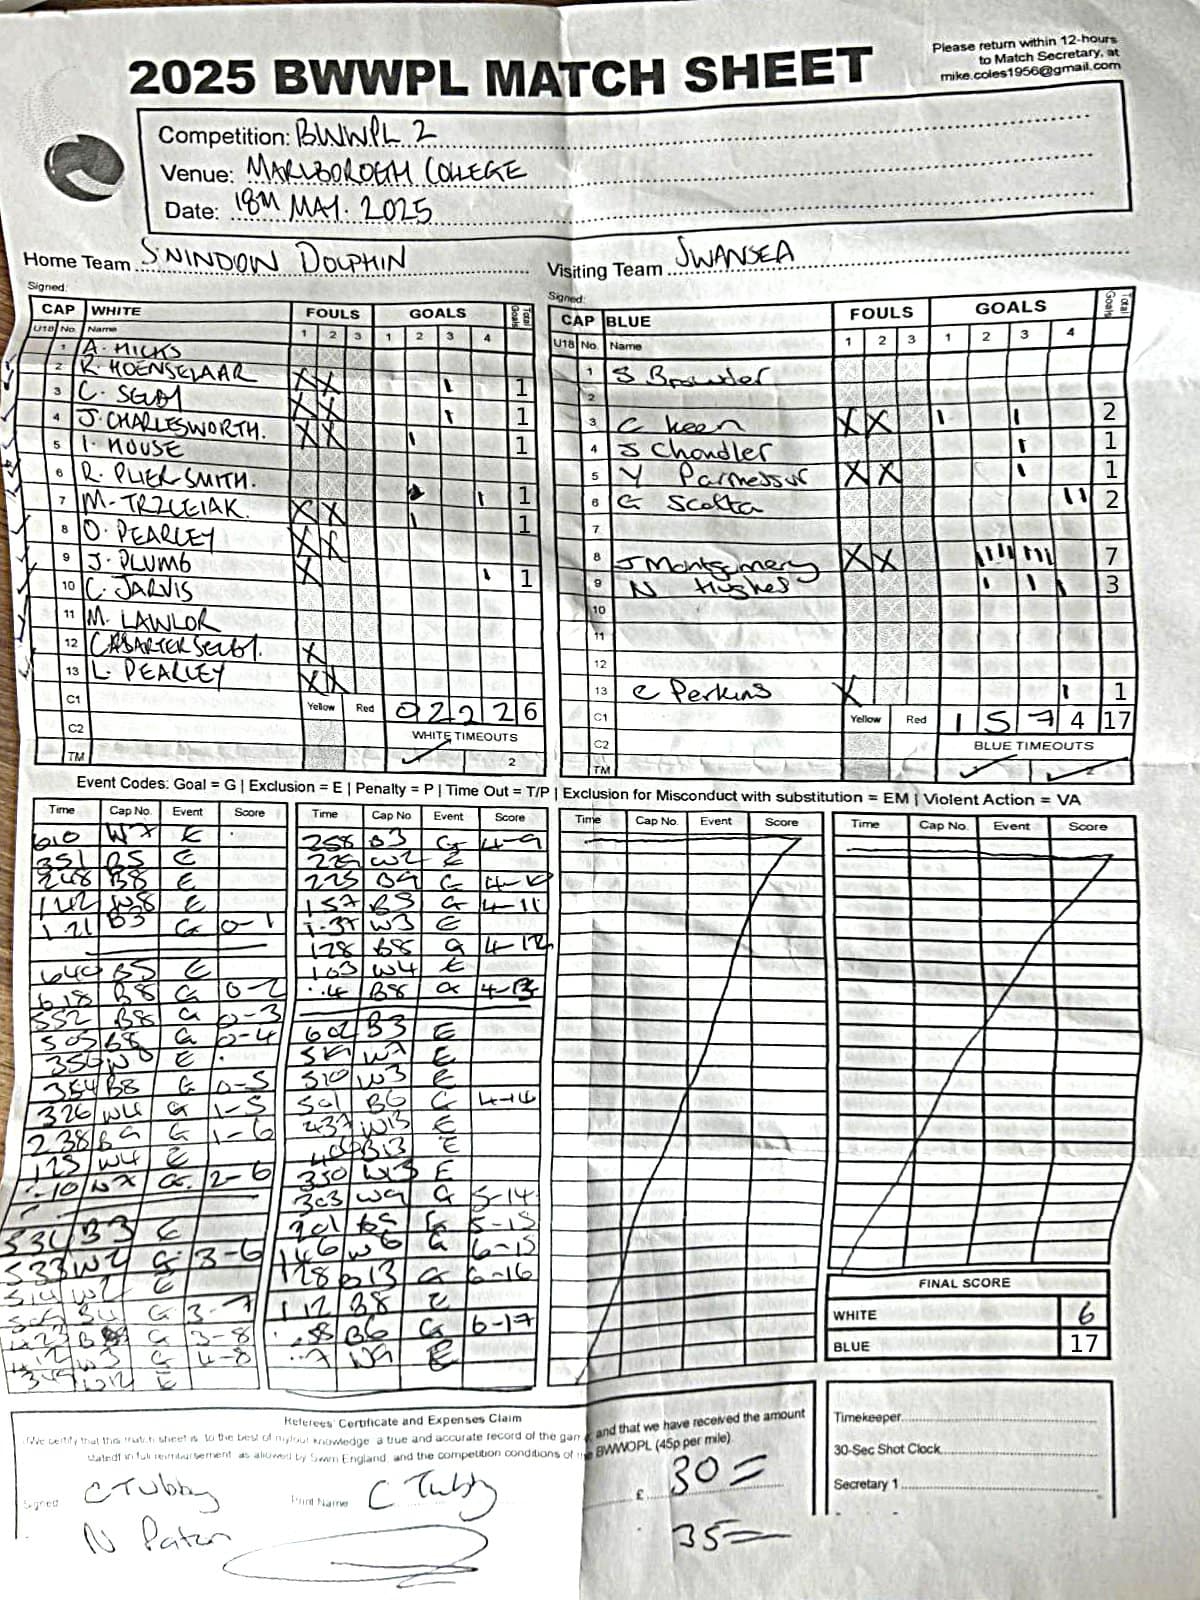 Please return within 12-hours
to Match Secretary, at
mike.coles1956@gmail.com
2025 BWWPL MATCH SHEET
Competition: BWWPL 2
Venue: MARLBOROUGH COLLEGE
Date: 18TH MAY. 2025
Home Team SWINDON DOLPHIN
Visiting Team SWANSEA
Signed:
CAP WHITE FOULS GOALS Total Goals
U18 No. Name 1 2 3 1 2 3 4
1 A. HICKS
2 K. HOENSELAAR X X 1
3 C. SELBY X X 1
4 J. CHARLESWORTH. X X 1
5 I. HOUSE
6 R. PLIER SMITH. 1
7 M. TRZLEIAK. X X 1
8 O. PEARLEY X X
9 J. PLUMB X 1
10 C. JARVIS
11 M. LAWLOR
12 X
13 L. PEARLEY X X
C1 Yellow Red 0 2 2 2 6
C2 WHITE TIMEOUTS
TM 2
Signed:
CAP BLUE FOULS GOALS Total Goals
U18 No. Name 1 2 3 1 2 3 4
1 S Browder
2
3 C Keen X X 2
4 S Chandler 1
5 Y Parmessur X X 1
6 G Scotta 2
7
8 J Montgomery X X 7
9 N Hughes 3
10
11
12
13 C Perkins X 1
C1 Yellow Red 1 5 7 4 17
C2 BLUE TIMEOUTS
TM 2
Event Codes: Goal = G | Exclusion = E | Penalty = P | Time Out = T/P | Exclusion for Misconduct with substitution = EM | Violent Action = VA
Time Cap No. Event Score
610 W7 E
351 B5 E
248 B8 E
142 W8 E
1 21 B3 G 0-1
640 B5 E
618 B8 G 0-2
552 B8 G 0-3
505 B8 G 0-4
356 W8 E
354 B8 G 0-5
326 W4 G 1-5
238 B9 G 1-6
125 W4 E
10 W7 G. 2-6
536 B3 E
533 W2 G 3-6
514 W2 E
B4 G 3-7
422 B8 G 3-8
412 W3 G 4-8
349 W12 E
Time Cap No Event Score
258 B3 G 4-9
229 W2 E
225 B9 G 4-10
157 B5 G 4-11
1.37 W3 E
128 B8 G 4-12
103 W4 E
4 B8 G 4-13
602 B3 E
W7 E
510 W3 E
501 B6 G 4-14
437 W13 E
B13 E
350 E
303 W9 G 5-14
201 G 5-15
146 W6 G 6-15
128 B13 G 6-16
112 B8 E
58 B6 G 6-17
7 W9 E
Time Cap No. Event Score
Time Cap No. Event Score
FINAL SCORE
WHITE 6
BLUE 17
Referees' Certificate and Expenses Claim
(We certify that this match sheet is to the best of my/our knowledge a true and accurate record of the game, and that we have received the amount
stated in full reimbursement as allowed by Swim England, and the competition conditions of the BWWOPL (45p per mile)
Signed C Tubby Print Name C Tubby £ 30=
N Paton 35=
Timekeeper
30-Sec Shot Clock
Secretary 1